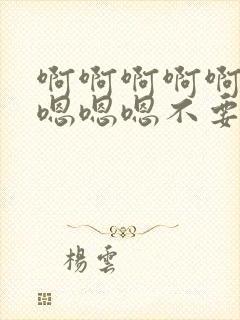 啊啊啊啊啊
嗯嗯嗯不要
楊雲